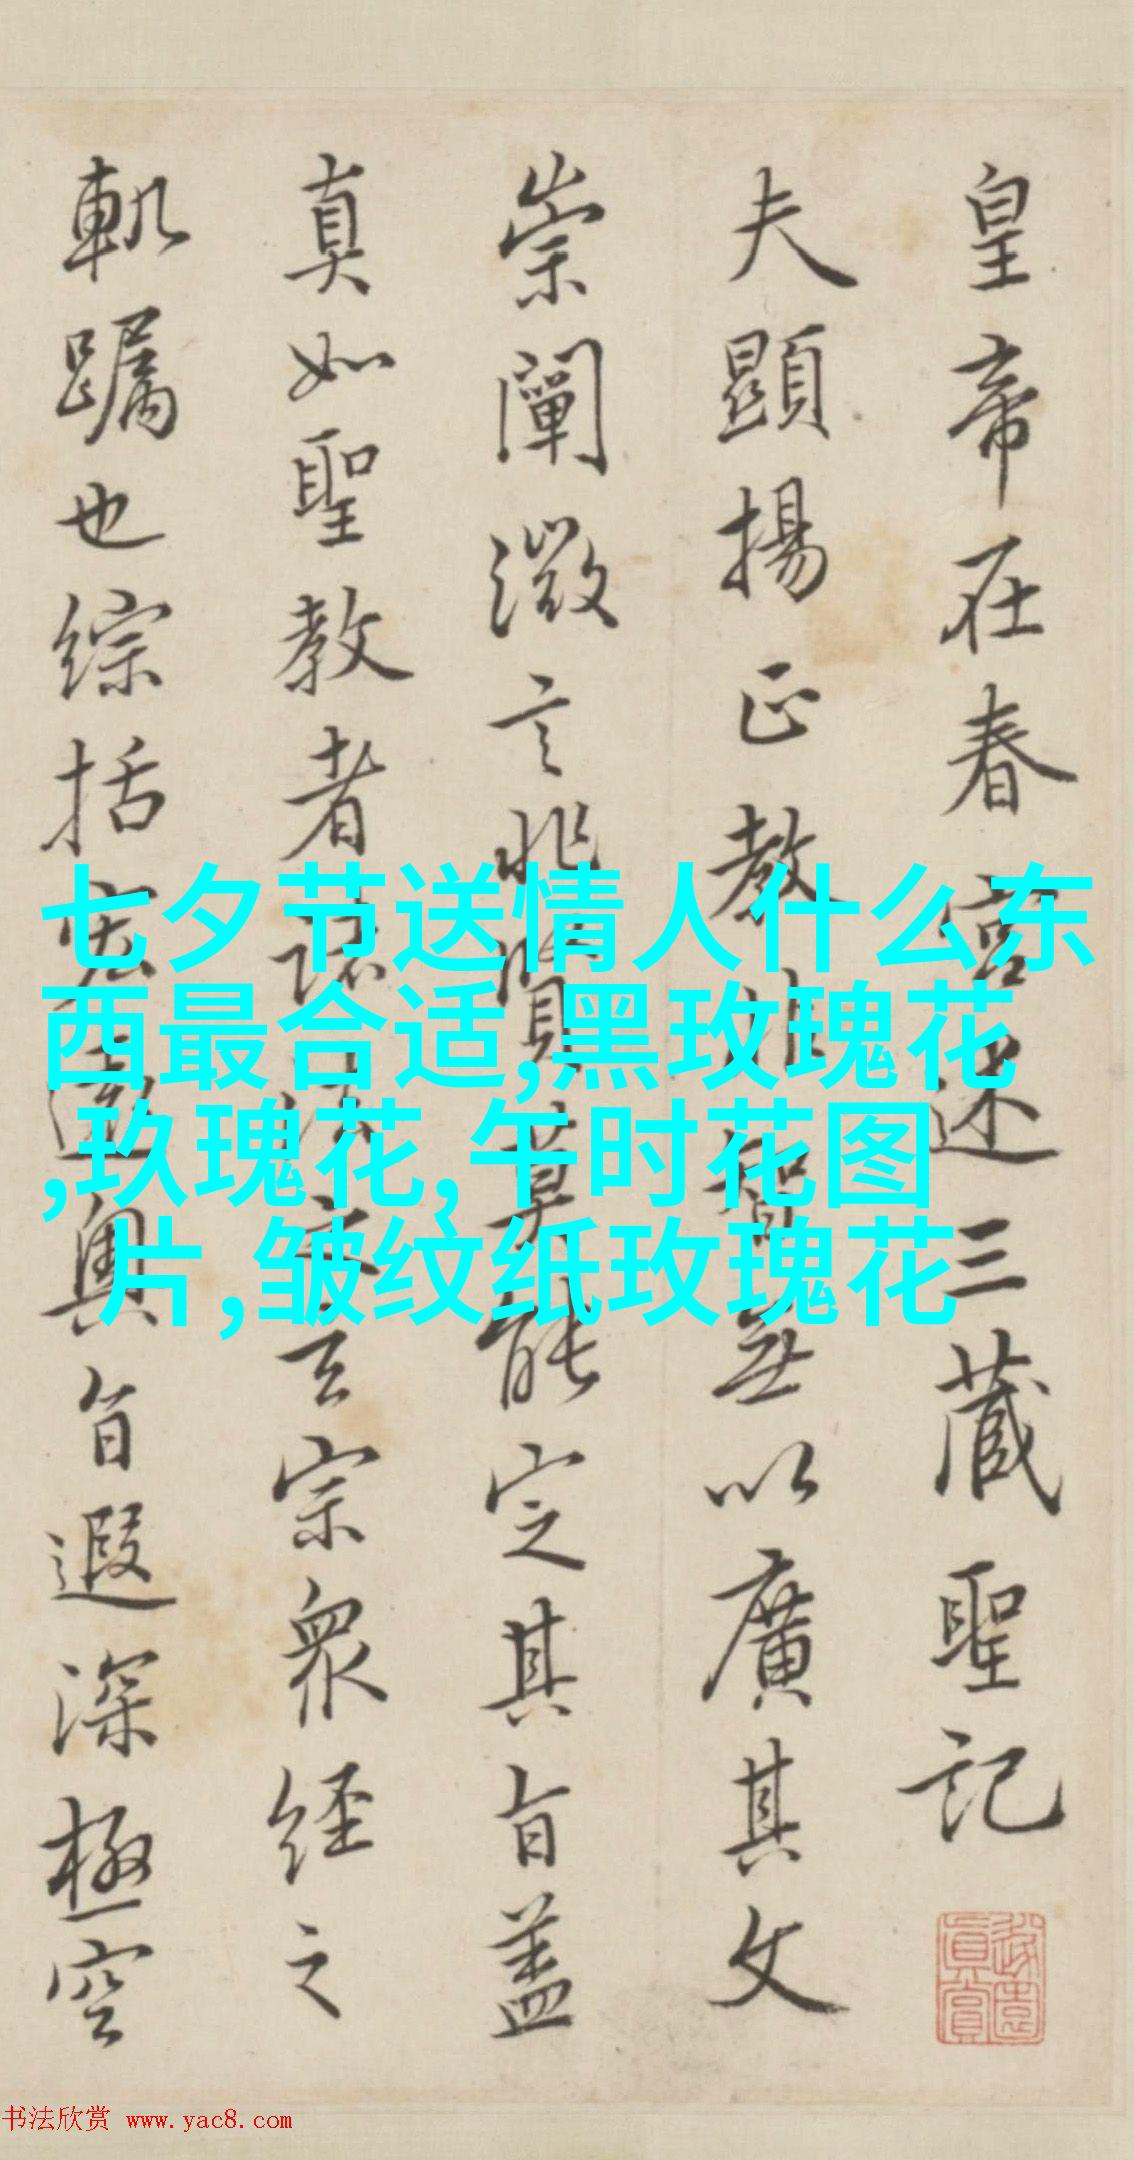 皇帝在春宮述三藏聖記
夫顯揚正教非智無以廣其文
崇闡微言非賢莫能定其旨蓋
真如聖教者諸法之玄宗眾經之
軌躅也綜括宏遠奧旨遐深極空
七夕节送情人什么东
西最合适,黑玫瑰花
,玖瑰花,午时花图
片,皱纹纸玫瑰花
书法欣赏 www.yac8.com